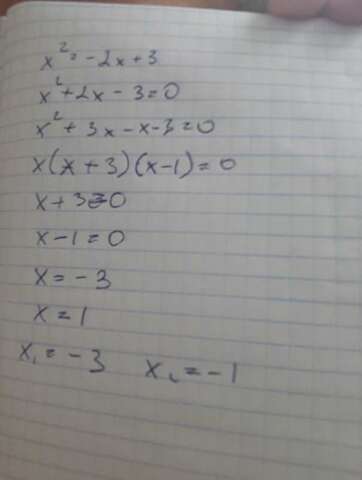 x² = -2x + 3
x² + 2x - 3 = 0
x² + 3x - x - 3 = 0
x(x + 3)(x - 1) = 0
x + 3 = 0
x - 1 = 0
x = -3
x = 1
x₁ = -3 x₂ = -1